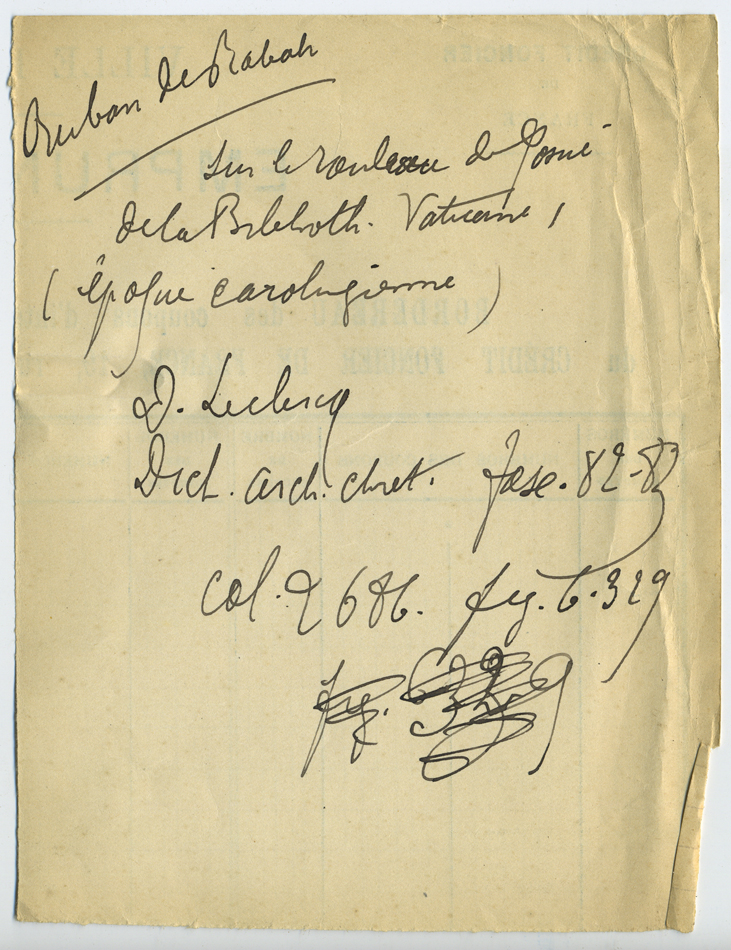 Ruban de Rabab
sur le rouleau de Josué
de la Biblioth. Vaticane,
(époque carolingienne)
D. Leclercq
Dict. arch. chret. fasc. 82-83
col. 2686. fig. 6.329
fig.